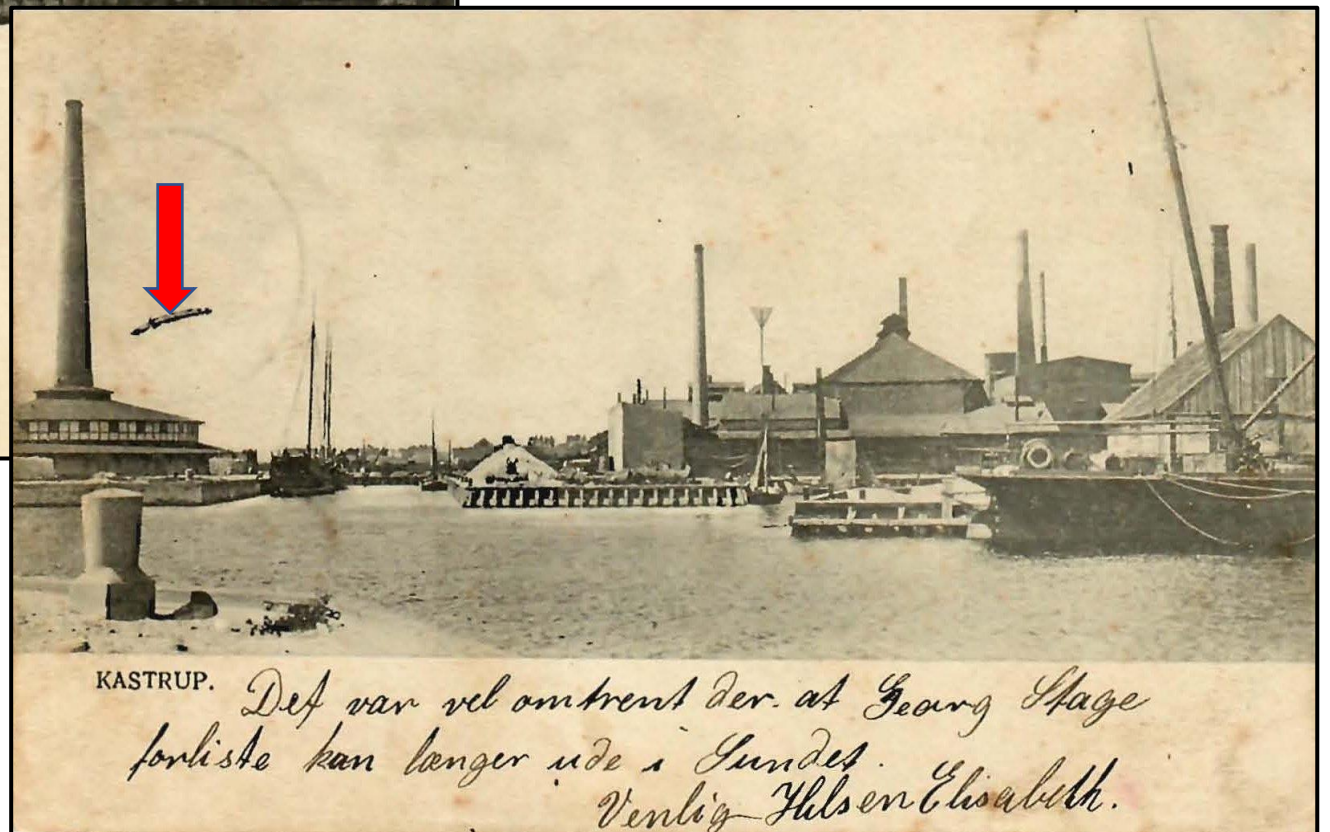 KASTRUP.
Det var vel omtrent der. at Georg Stage
forliste kun længer ude i Sundet.
Venlig Hilsen Elisabeth.